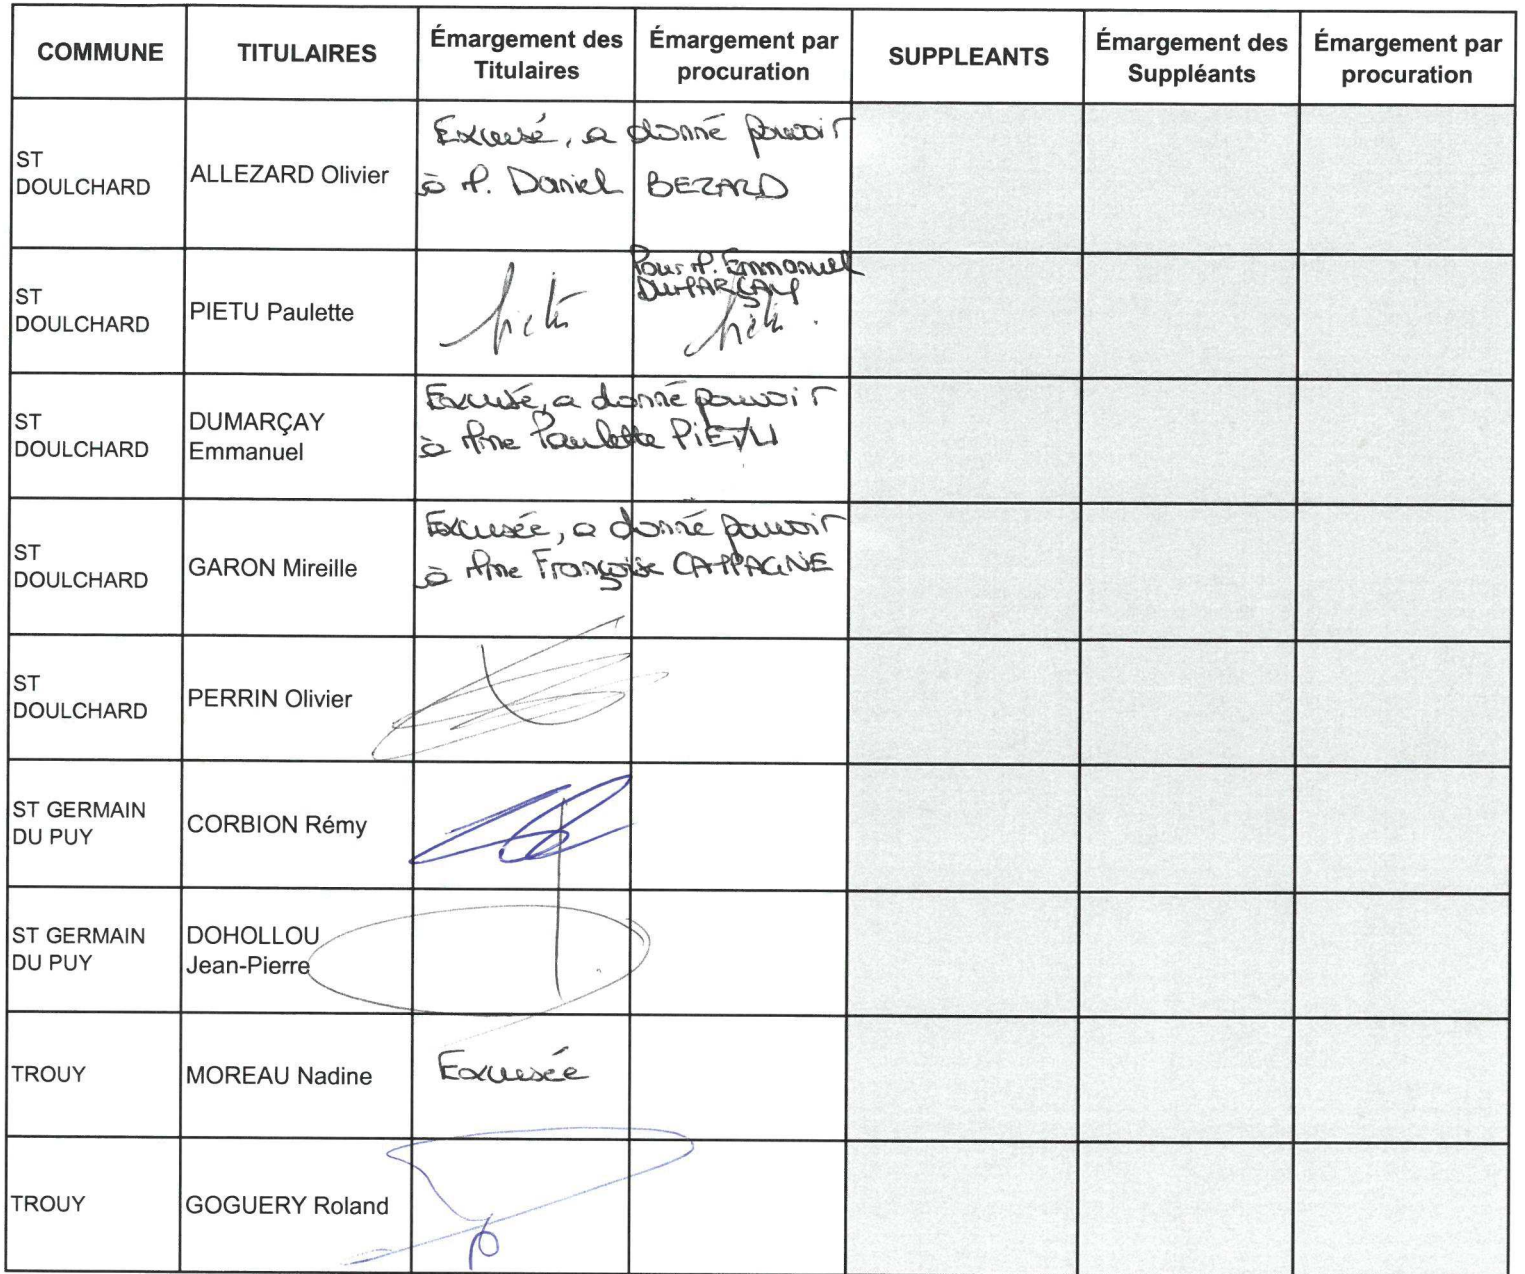 COMMUNE TITULAIRES Émargement des Titulaires Émargement par procuration SUPPLEANTS Émargement des Suppléants Émargement par procuration
ST DOULCHARD ALLEZARD Olivier Excusé, a donné pouvoir
à M. Daniel BEZARD
ST DOULCHARD PIETU Paulette Pietu Pour M. Emmanuel
DUMARÇAY
Pietu
ST DOULCHARD DUMARÇAY Emmanuel Excusé, a donné pouvoir
à Mme Paulette PIETU
ST DOULCHARD GARON Mireille Excusée, a donné pouvoir
à Mme Françoise CAMPAGNE
ST DOULCHARD PERRIN Olivier
ST GERMAIN DU PUY CORBION Rémy
ST GERMAIN DU PUY DOHOLLOU Jean-Pierre
TROUY MOREAU Nadine Excusée
TROUY GOGUERY Roland